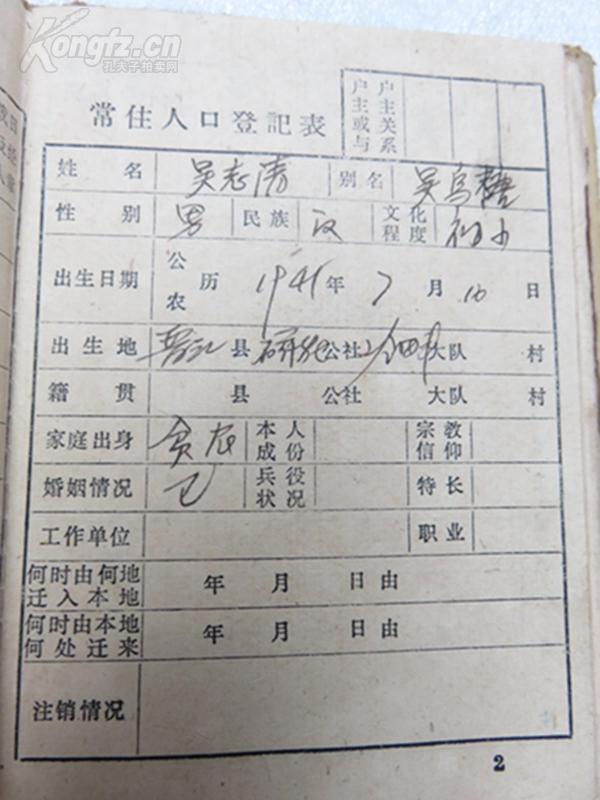 Kongfz.cn
孔夫子拍卖网
常住人口登記表
户主或与户主关系
姓名 吴志清 别名 吴乌糖
性别 男 民族 汉 文化程度 初小
出生日期 公农历 1945年 7月 10日
出生地 晋江县 公社 大队 村
籍贯 县 公社 大队 村
家庭出身 贫农 本人成份 宗教信仰
婚姻情况 已 兵役状况 特长
工作单位 职业
何时由何地迁入本地 年 月 日由
何时由本地何处迁来 年 月 日由
注销情况
2